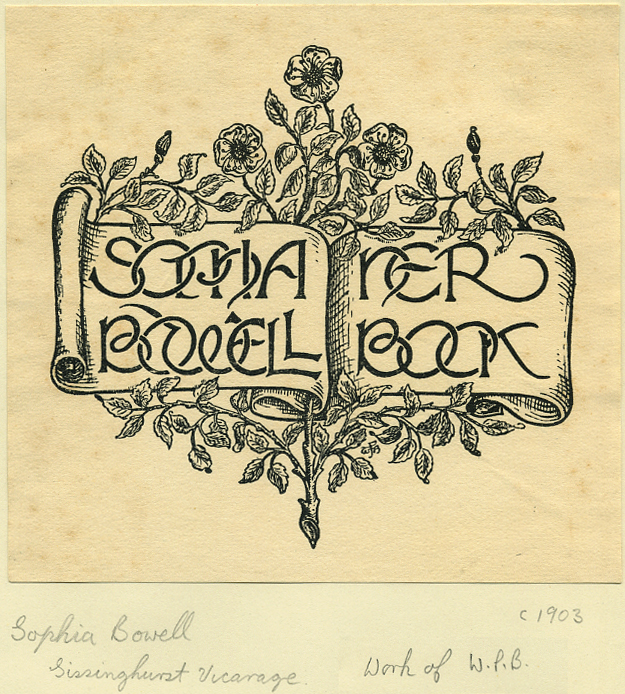 SOPHIA
BOWELL
HER
BOOK
c 1903
Sophia Bowell
Sissinghurst Vicarage.
Work of W.P.B.